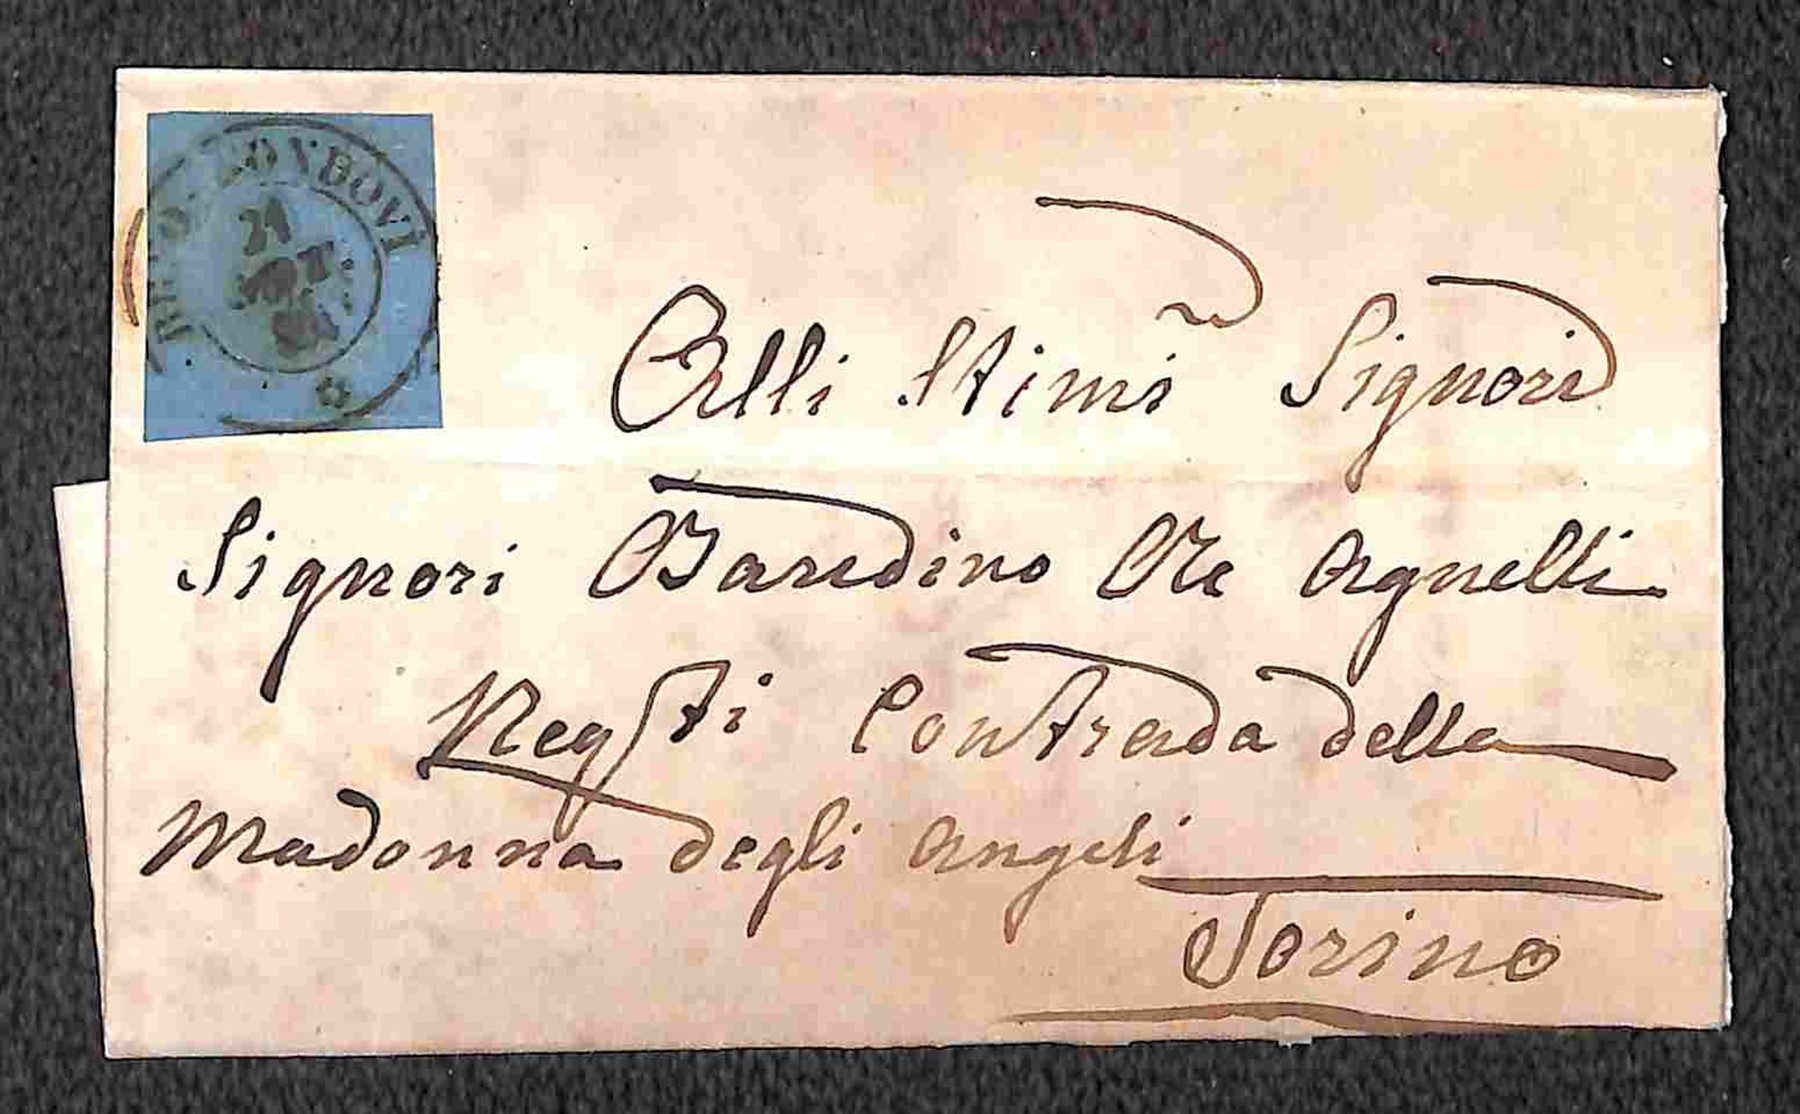 MONDOVÌ
21
Alli Stimi Signori
Signori Baredino Re Agnelli
Negsti Contrada della
Madonna degli Angeli
Torino